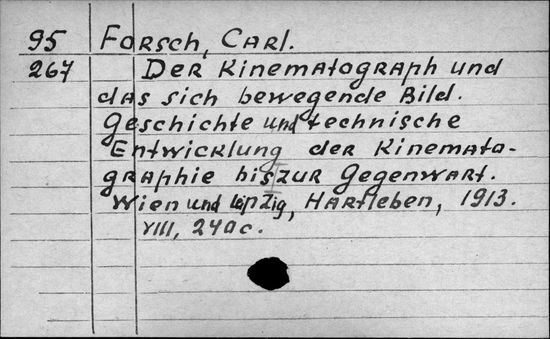 95 Forsch, Carl.
267 Der Kinematograph und
das sich bewegende Bild.
Geschichte und technische
Entwicklung der Kinemato-
graphie bis zur Gegenwart.
Wien und Leipzig, Hartleben, 1913.
VIII, 240 c.